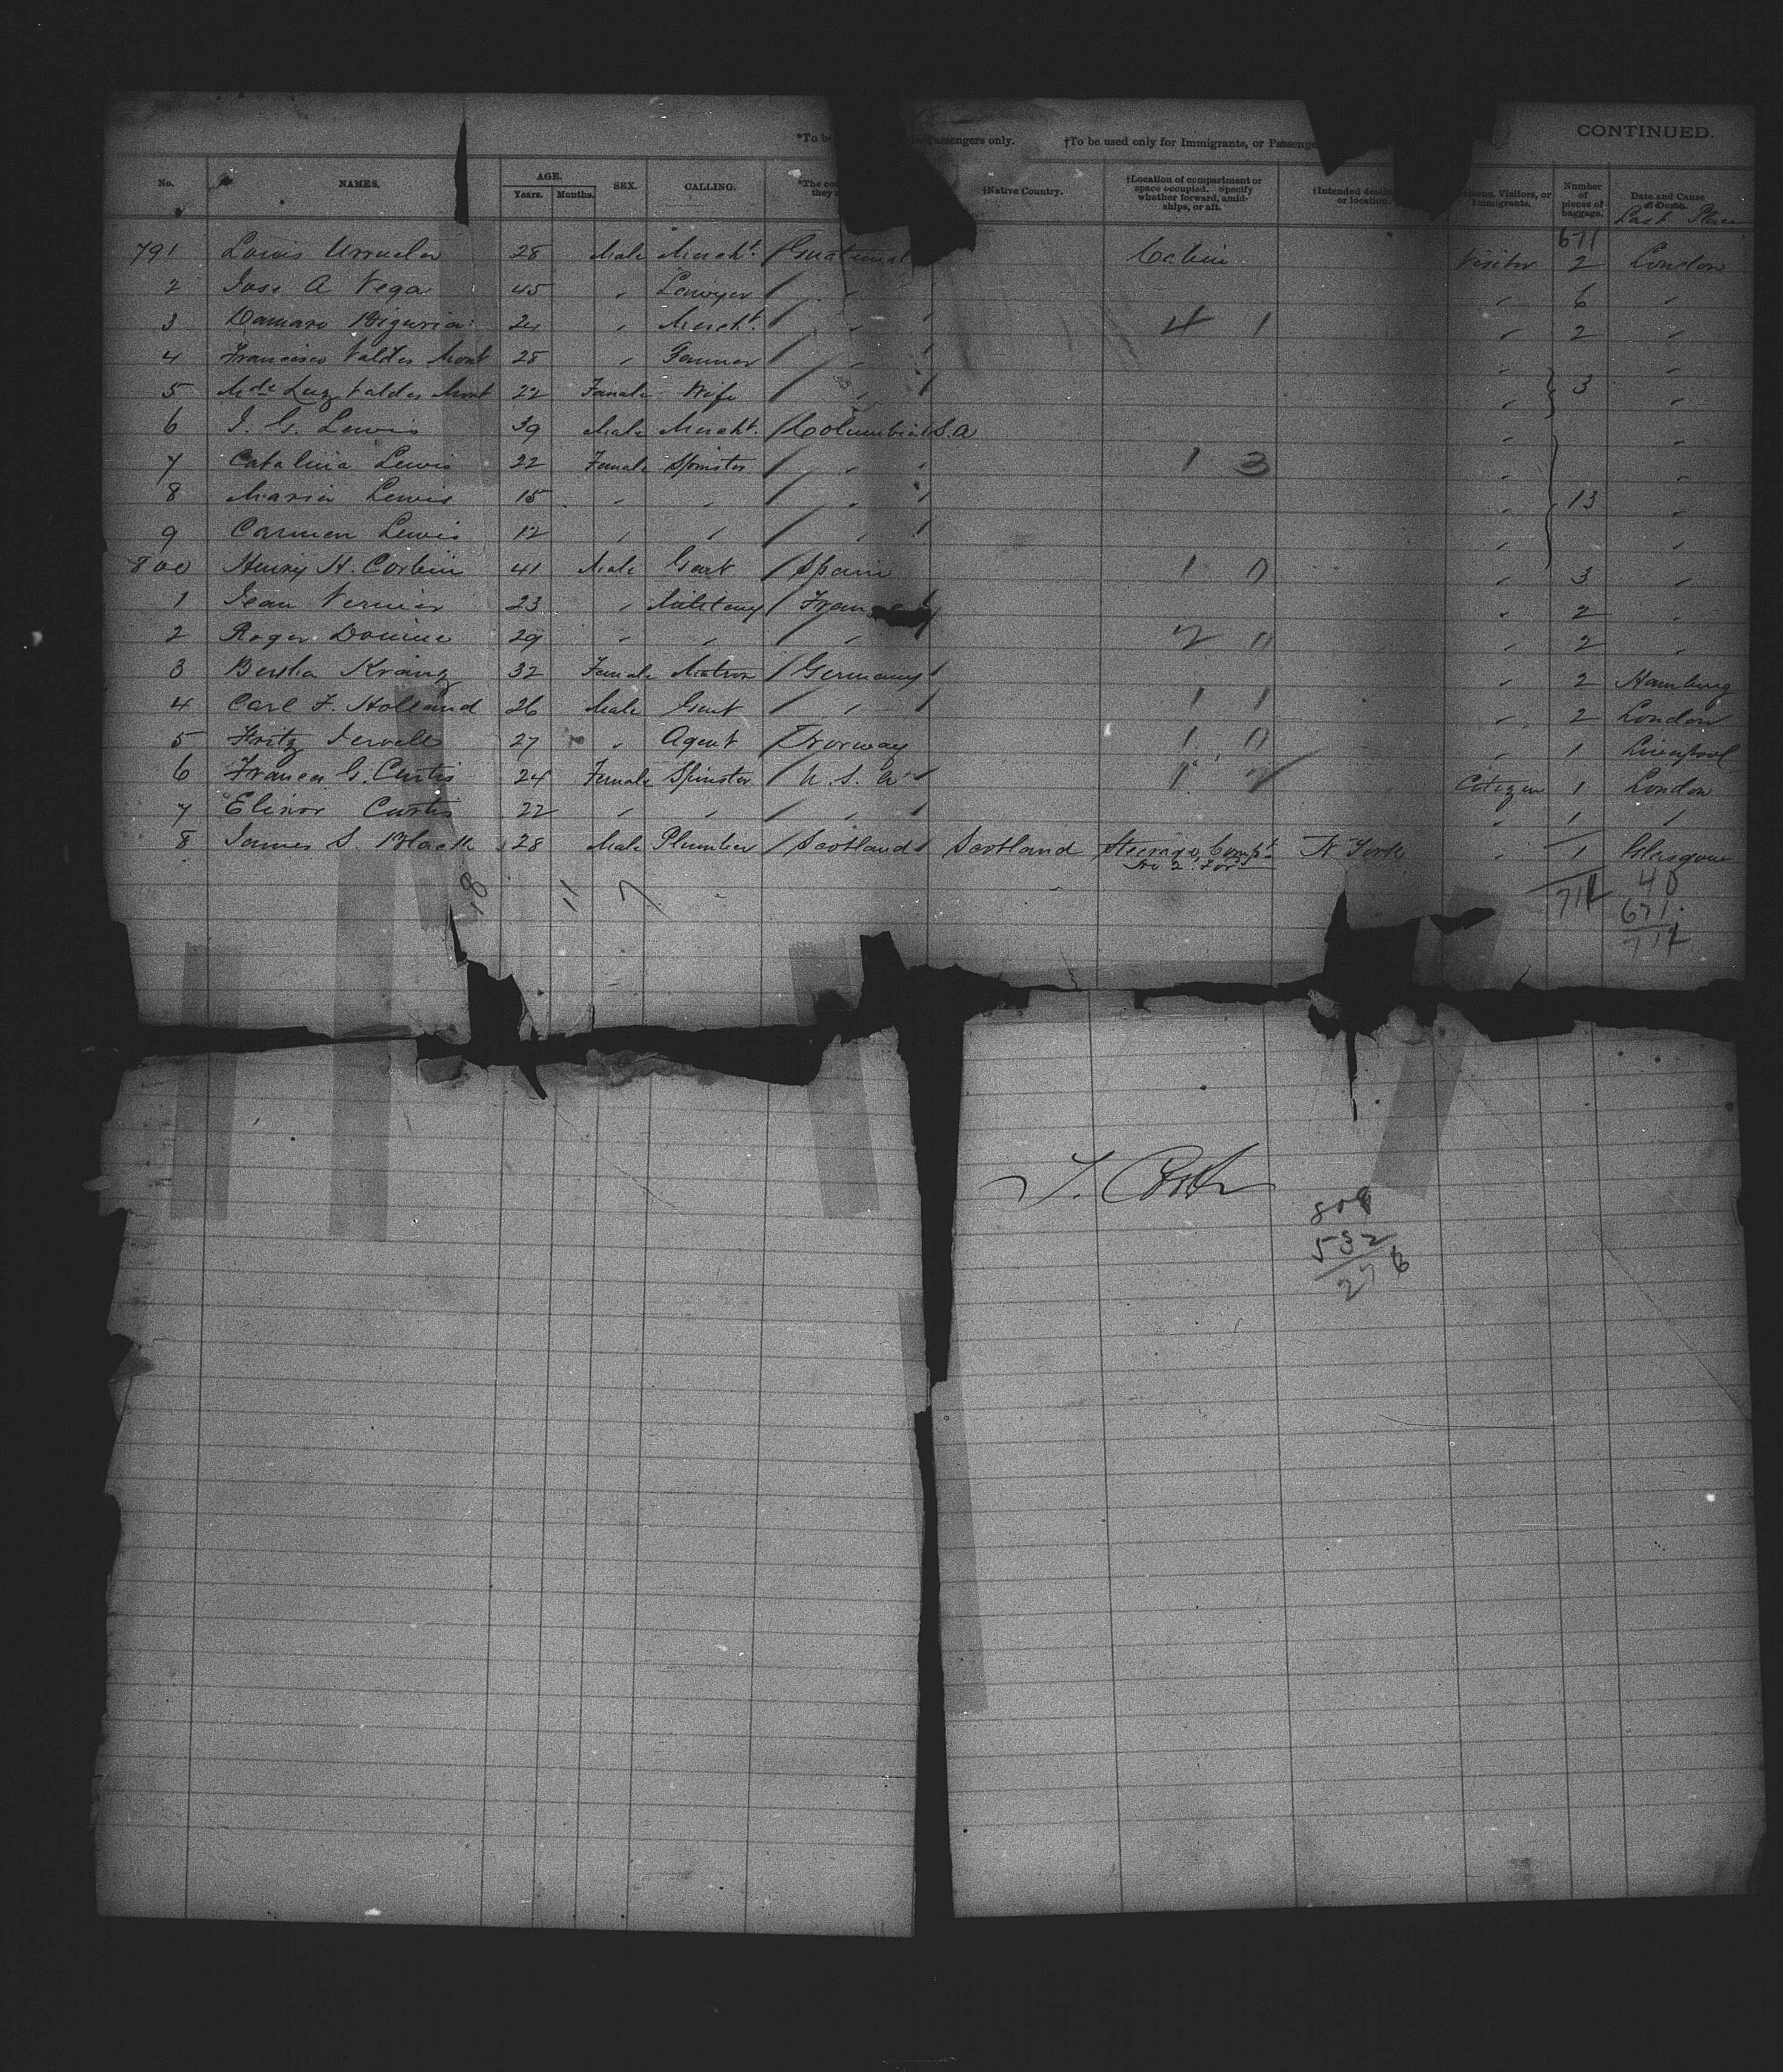 CONTINUED.
*To be Passengers only. †To be used only for Immigrants, or Passenge
No. NAMES. AGE. Years. Months. SEX. CALLING. *The co they †Native Country. †Location of compartment or space occupied. Specify whether forward, amidships, or aft. †Intended desti or location. izens, Visitors, or Immigrants. Number of pieces of baggage. Date and Cause of Death.
Last Place
671
791 Louis Urruela 28 Male Mercht. Guatemal Cabin Visitor 2 London
2 Jose A Vega 45 " Lawyer " " " 6 "
3 24 " Mercht. " " 4 1 " 2 "
4 Francisco Valdes Mont 28 " Farmer " " " "
5 Mde Luz Valdes Mont 22 Female Wife " " " 3 "
6 J. G. Lewis 39 Male Mercht. Columbia S.A " "
7 Catalina Lewis 22 Female Spinster " " 1 3 " "
8 Maria Lewis 15 " " " " " 13 "
9 Carmen Lewis 12 " " " " " "
800 Henry H. Corbin 41 Male Gent Spain 1 0 " 3 "
1 Jean Vernier 23 " Military France " 2 "
2 Roger 29 " " " 2 0 " 2 "
3 Bertha Kranz 32 Female Matron Germany " 2 Hamburg
4 Carl F. Holland 26 Male Gent " 1 1 " 2 London
5 Fritz Jervell 27 " Agent Norway 1 0 " 1 Liverpool
6 Frances G. Curtis 24 Female Spinster U. S. A. 1 Citizen 1 London
7 Elinor Curtis 22 " " " " " 1 "
8 James S. Black 28 Male Plumber Scotland Scotland Steerage, Compt. N York " 1 Glasgow
No 2. For
18 11 7 711 40
671
711
808
532
276